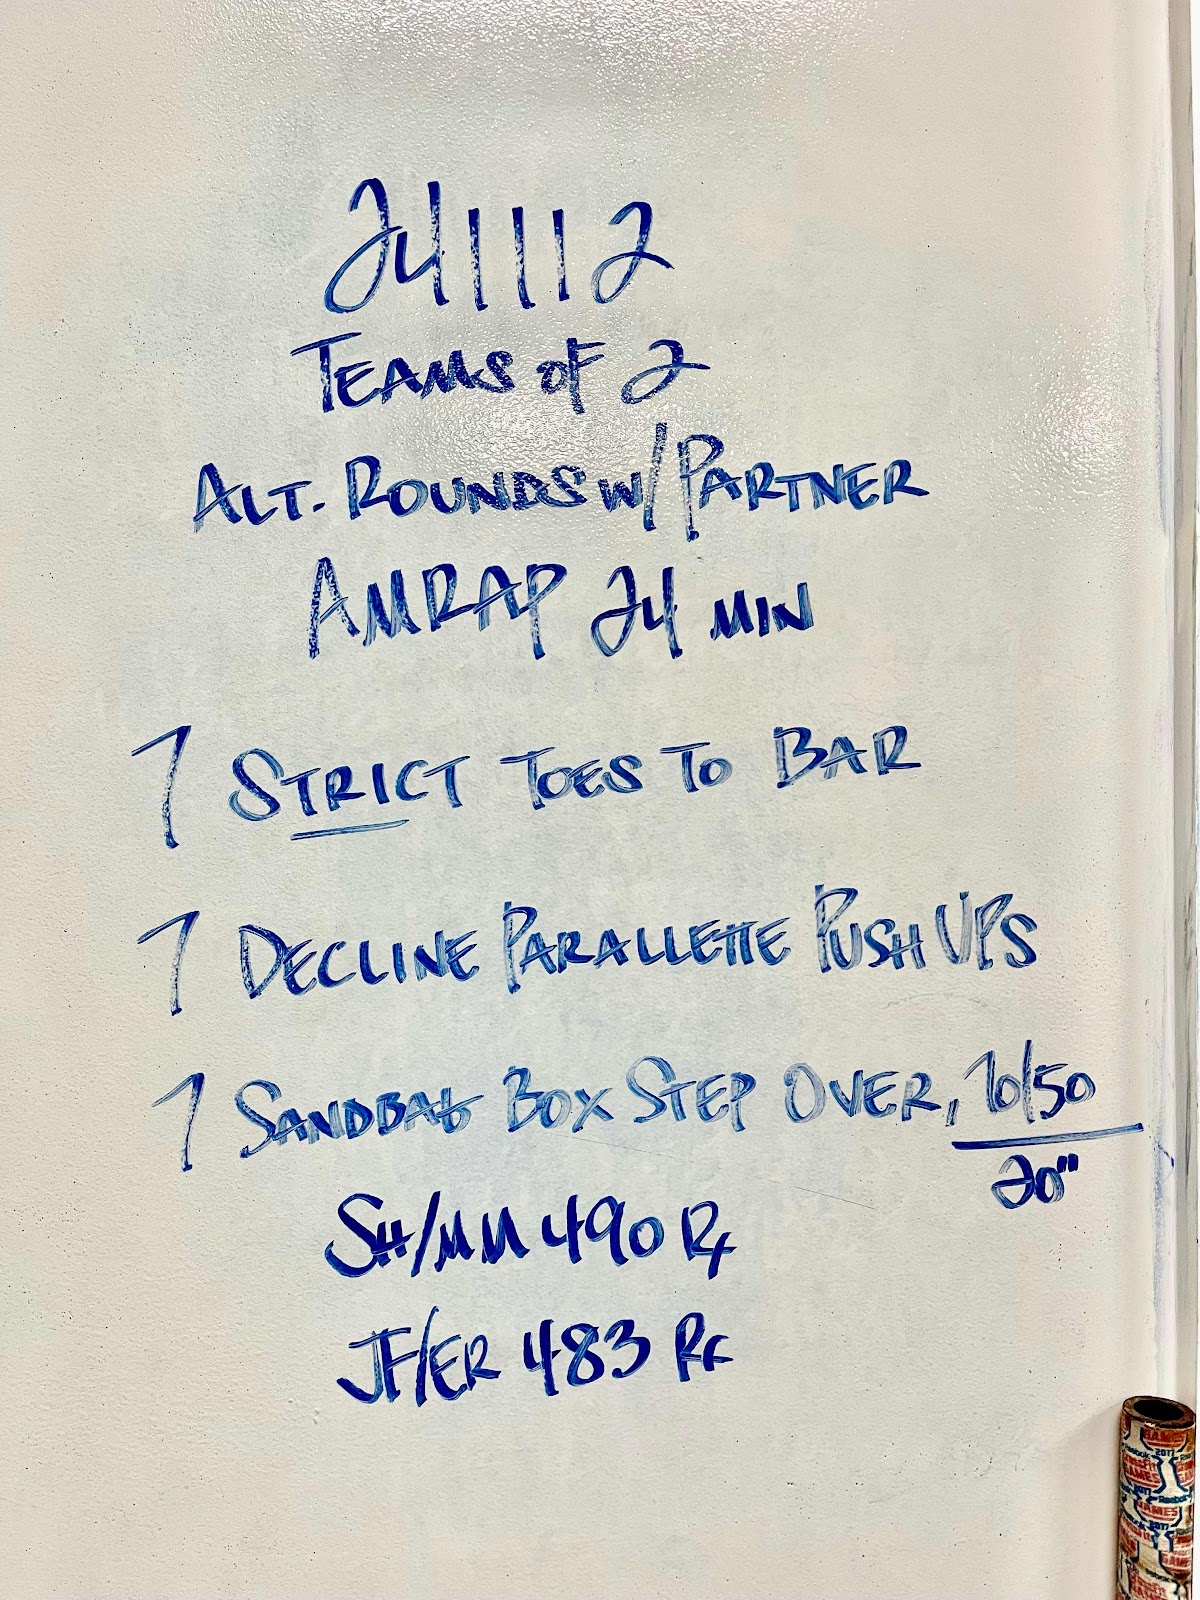 241112
TEAMS OF 2
ALT. ROUNDS W/PARTNER
AMRAP 24 MIN
7 STRICT TOES TO BAR
7 DECLINE PARALLETTE PUSH UPS
7 SANDBAG BOX STEP OVER, 70/50
20"
SH/MM 490 Rx
JF/ER 483 Rx
GAMES
Reebok 2017
CROSSFIT
GAMES
Reebok
GAMES
2017